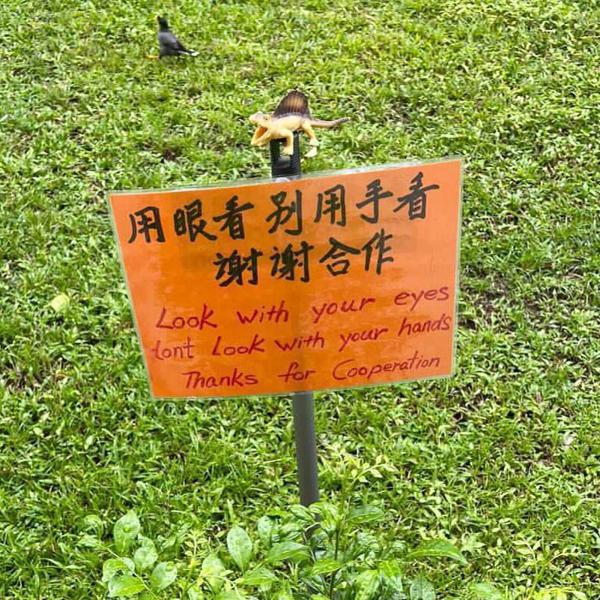 用眼看别用手看
谢谢合作
Look with your eyes
tont Look with your hands
Thanks for Cooperation